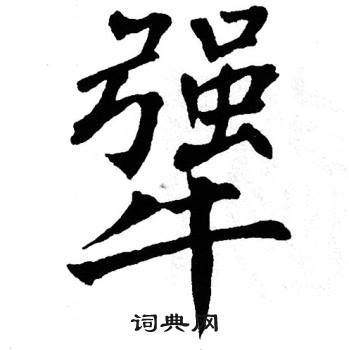 犟
词典网